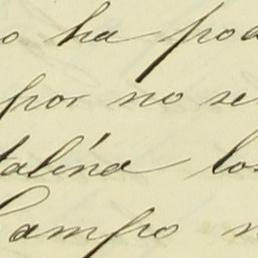 o ha pod
por no se
talina los
Campo n